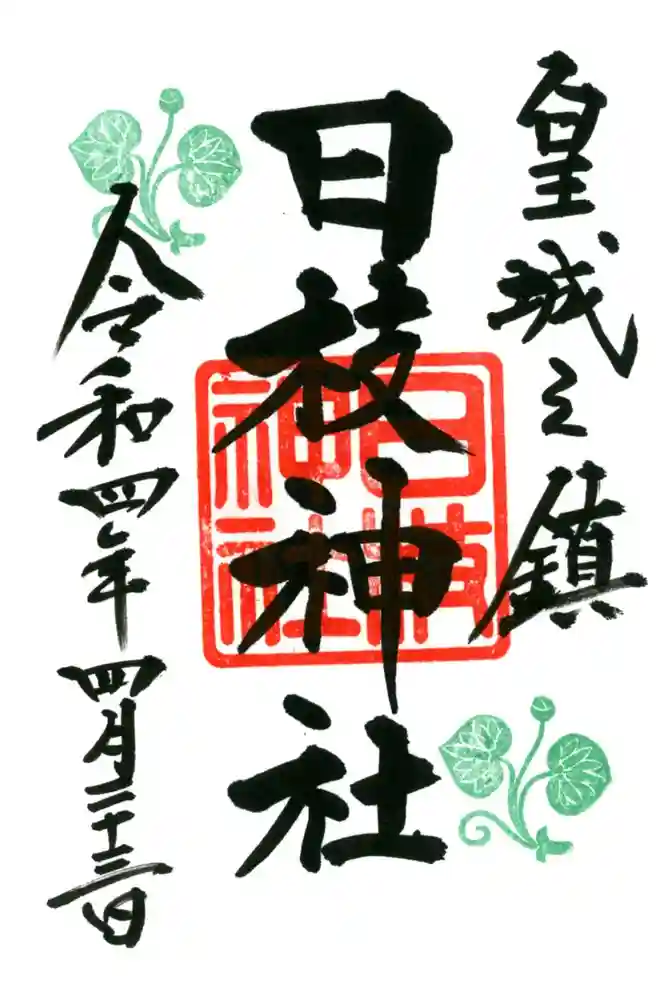 皇城之鎮
日枝神社
日枝神社
令和四年四月二十三日